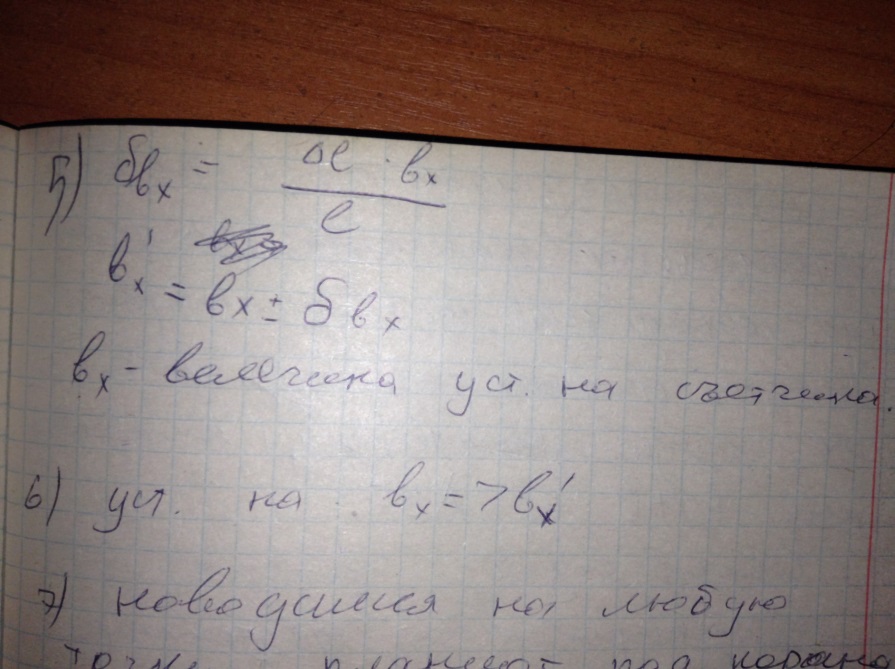 5) δвₓ = Δℓ · вₓ / ℓ
в'ₓ = вₓ ± δвₓ
вₓ - величина уст. на счетчика.
6) уст. на вₓ => вₓ'
7) наводимся на любую
точку планшет под